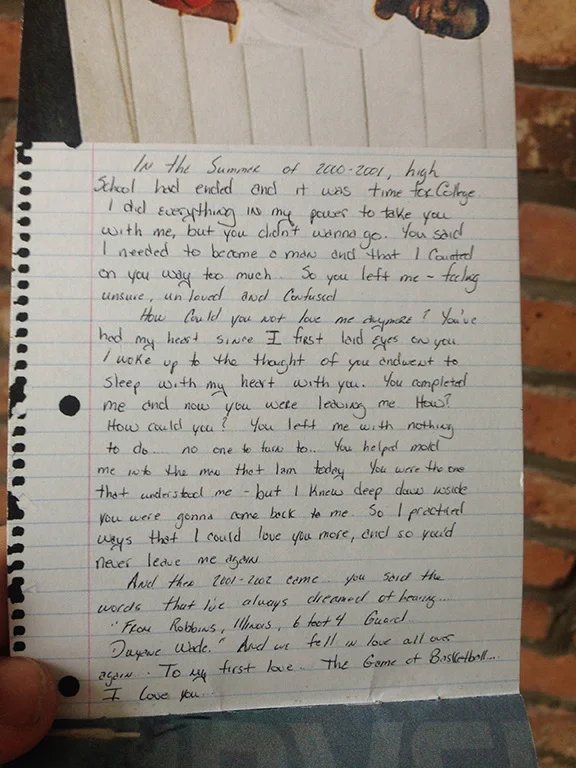 In the Summer of 2000-2001, high
School had ended and it was time for College.
I did everything in my power to take you
with me, but you didn't wanna go. You said
I needed to become a man and that I Counted
on you way too much.. So you left me - feeling
unsure, un loved and Confused
How Could you not love me anymore? You've
had my heart since I first laid eyes on you.
I woke up to the thought of you and went to
sleep with my heart with you. You completed
me and now you were leaving me. How?
How could you? You left me with nothing
to do.... no one to turn to.. You helped mold
me into the man that I am today. You were the one
that understood me - but I knew deep down inside
you were gonna come back to me. So I practiced
ways that I could love you more, and so you'd
never leave me again
And then 2001-2002 came.. you said the
words that I've always dreamed of hearing...
"From Robbins, Illinois, 6 foot 4 Guard
Dwyane Wade." And we fell in love all over
again. To my first love.. The Game of Basketball...
I love you...